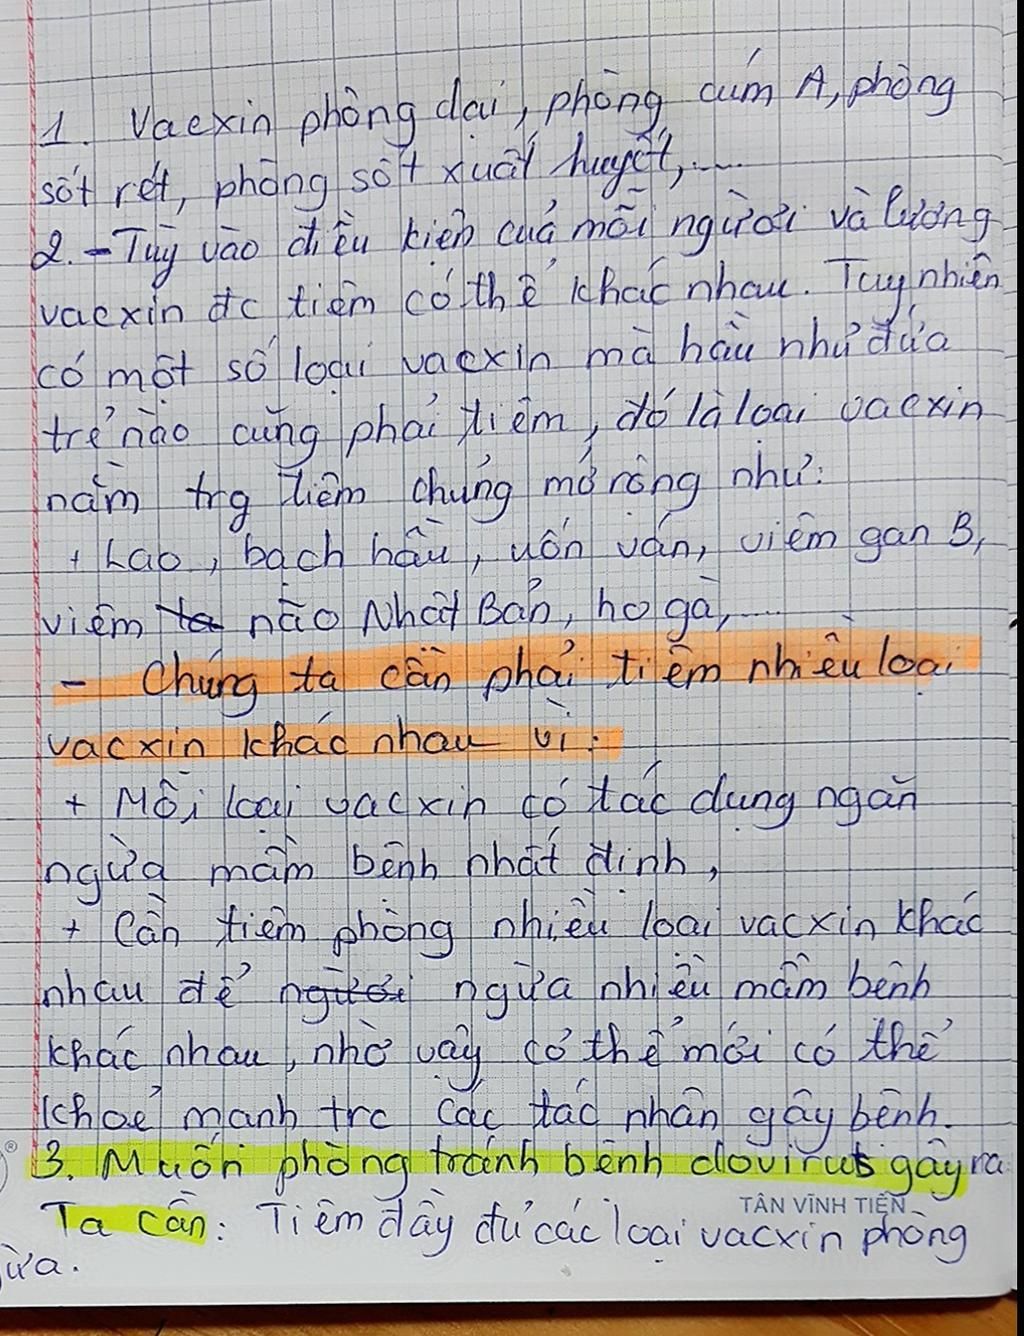 1. Vacxin phòng dại, phòng cúm A, phòng
sốt rét, phòng sốt xuất huyết,....
2. - Tùy vào điều kiện của mỗi người và lượng
vacxin đc tiêm có thể khác nhau. Tuy nhiên
có một số loại vacxin mà hầu như đứa
trẻ nào cũng phải tiêm, đó là loại vacxin
nằm trg tiêm chủng mở rộng như:
+ Lao, bạch hầu, uốn ván, viêm gan B,
viêm não Nhật Bản, ho gà,....
- Chúng ta cần phải tiêm nhiều loại
vacxin khác nhau vì:
+ Mỗi loại vacxin có tác dụng ngăn
ngừa mầm bệnh nhất định,
+ Cần tiêm phòng nhiều loại vacxin khác
nhau để người ngừa nhiều mầm bệnh
khác nhau, nhờ vậy cơ thể mới có thể
khoẻ mạnh trc các tác nhân gây bệnh.
3. Muốn phòng tránh bệnh do virut gây ra
TÂN VĨNH TIẾN
Ta cần: Tiêm đầy đủ các loại vacxin phòng
ừa.